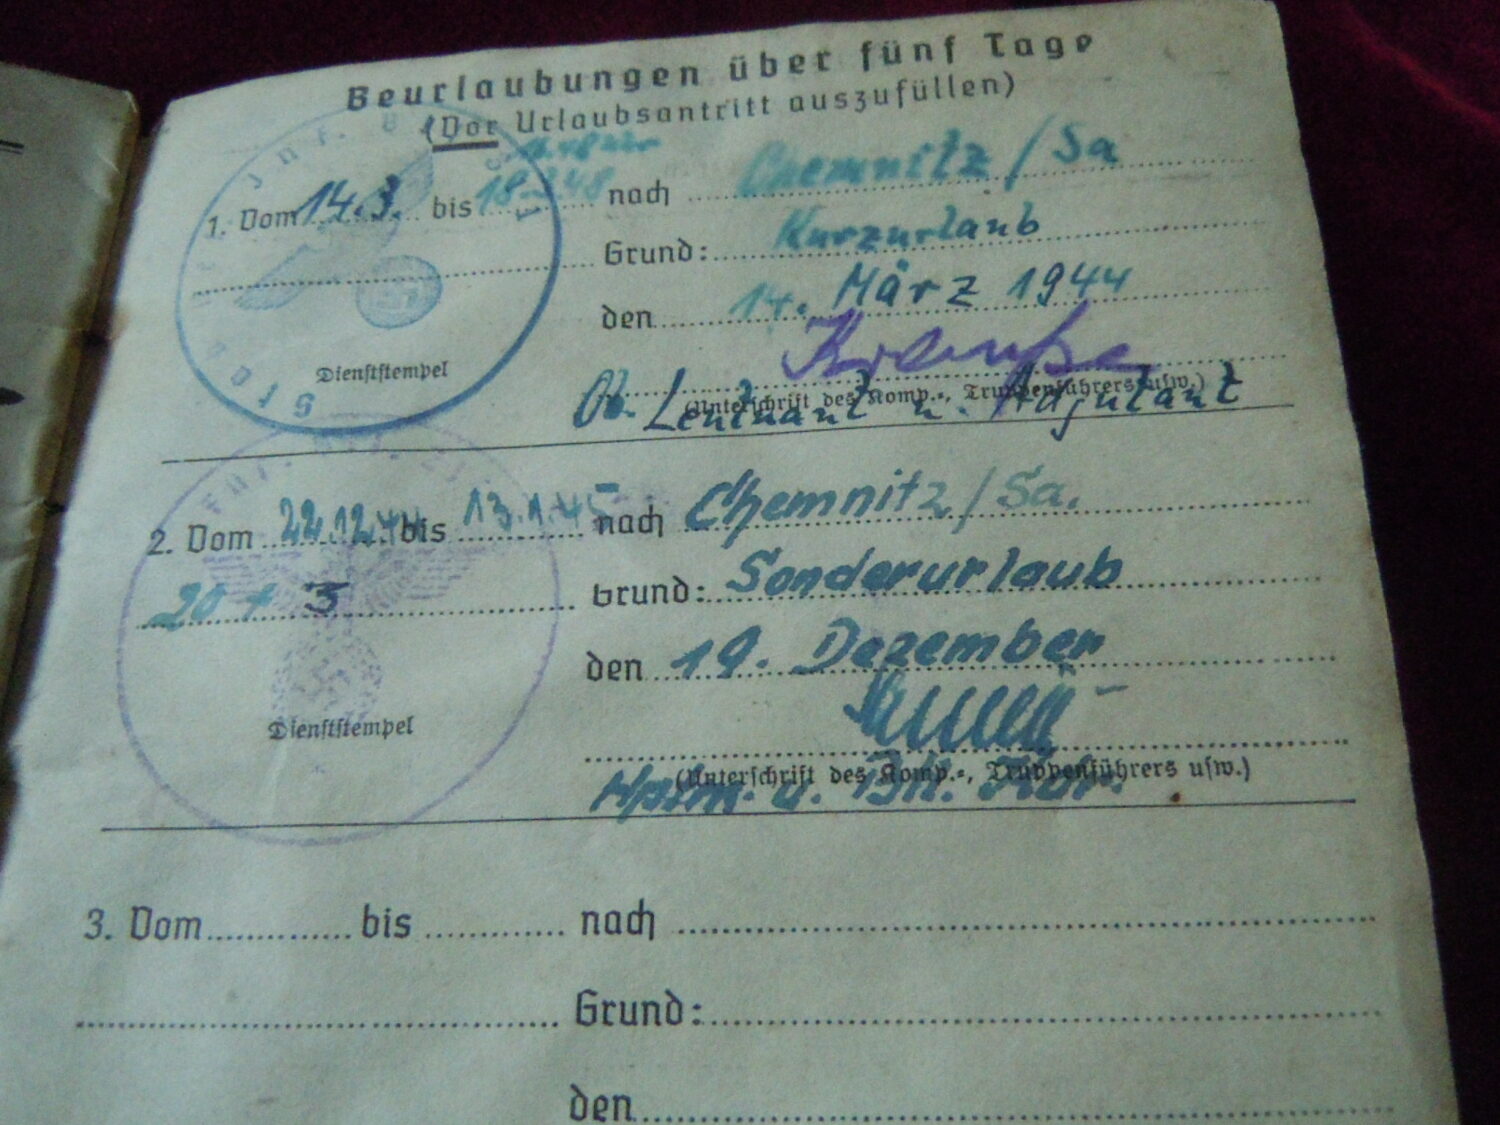 Beurlaubungen über fünf Tage
(Vor Urlaubsantritt auszufüllen)
1. Vom 14.3. bis nach Chemnitz/Sa
Grund: Kurzurlaub
den 14. März 1944
Dienststempel
(Unterschrift des Komp.-, Truppenführers usw.)
Ob. Leutnant u. Adjutant
2. Vom 22.12.44 bis 13.1.45 nach Chemnitz/Sa.
20 + 3 Grund: Sonderurlaub
den 19. Dezember
Dienststempel
(Unterschrift des Komp.-, Truppenführers usw.)
Hptm. u. Btl. Kdr.
3. Vom bis nach
Grund:
den